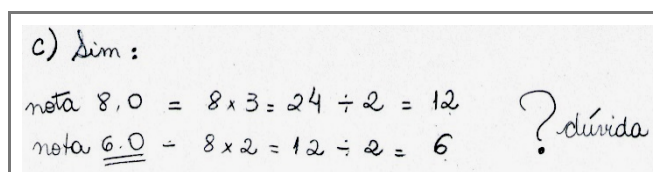 c) Sim:
nota 8,0 = 8 x 3 = 24 ÷ 2 = 12
nota 6.0 - 8 x 2 = 12 ÷ 2 = 6
? dúvida